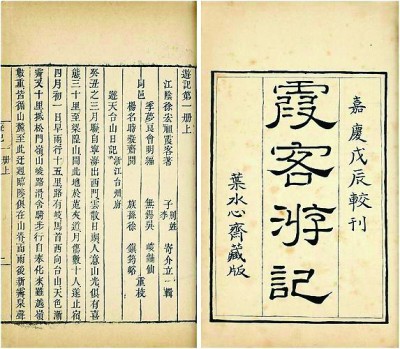 嘉慶戊辰較刊
霞客游記
葉水心齋藏版
遊記第一册上
江陰徐宏祖霞客著
子李寄介立輯
同邑
季夢良會明
楊名時
無錫吳峻
族孫徐鎮筠峪
遊天台山日記浙江台州府
癸丑之三月晦自寧海出西門雲散日朗人意山光俱有喜
態三十里至梁隍山聞此地於菟夾道月傷數十人遂止宿
四月初一日早雨行十五里路有岐馬首西向台山天色漸
霽又十里抵松門嶺山峻路滑舍騎步行自奉化來雖越嶺
數重皆循山麓至此迂迴臨陟俱在山脊而雨後新霽泉聲